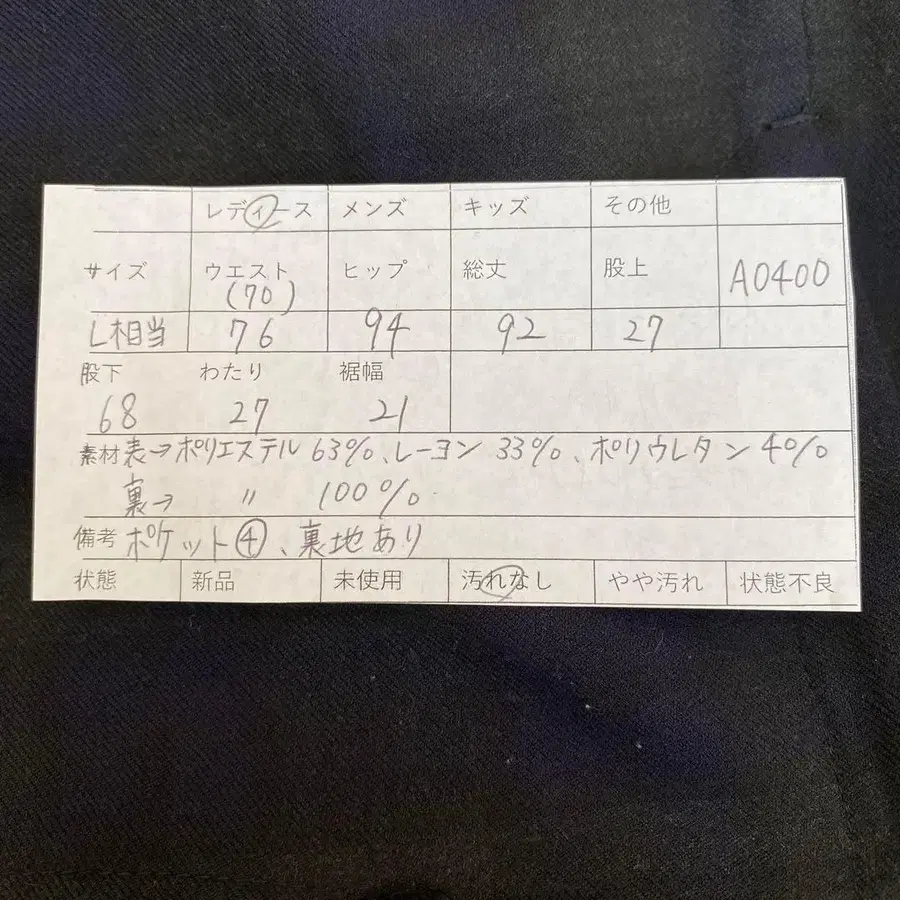 レディース メンズ キッズ その他
サイズ ウエスト ヒップ 総丈 股上 A0400
(70)
L相当 76 94 92 27
股下 わたり 裾幅
68 27 21
素材 表→ポリエステル 63%、レーヨン 33%、ポリウレタン 4%
裏→ 〃 100%
備考 ポケット④、裏地あり
状態 新品 未使用 汚れなし やや汚れ 状態不良